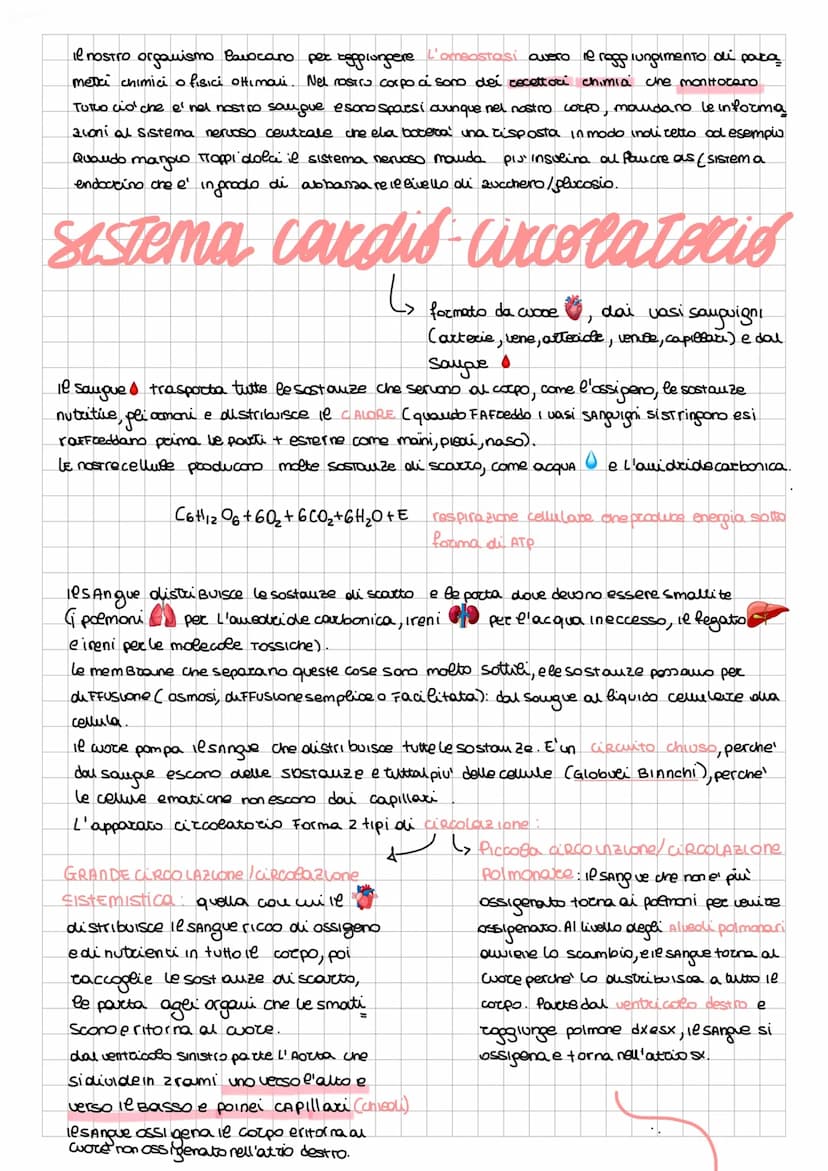 il nostro organismo lavorano per raggiungere l'omeostasi ovvero il raggiungimento di para
metri chimici o fisici ottimali. Nel nostro corpo ci sono dei recettori chimici che monitorano
Tutto ciò che e' nel nostro sangue e sono sparsi ovunque nel nostro corpo, mandano le informa
zioni al sistema nervoso centrale che elaborera' una risposta in modo indiretto ad esempio
Quando mangio troppi dolci il sistema nervoso manda più insulina al Pancreas (sistema
endocrino che e' in grado di abbassare il livello di zucchero/glucosio.
sistema cardio-circolatorio
formato da cuore, dai vasi sanguigni
(arterie, vene, arteriole, venule, capillari) e dal
sangue
il sangue trasporta tutte le sostanze che servono al corpo, come l'ossigeno, le sostanze
nutritive, gli ormoni e distribuisce il CALORE (quando FA freddo i vasi sanguigni si stringono e si
raffreddano prima le parti + esterne come mani, piedi, naso).
LE nostre cellule producono molte sostanze di scarto, come acqua e l'anidride carbonica.
C6H12O6+6O2+6CO2+6H2O+E respirazione cellulare che produce energia sotto
forma di ATP
il sangue distribuisce le sostanze di scarto e le porta dove devono essere smaltite
(i polmoni per l'anidride carbonica, i reni per l'acqua in eccesso, il fegato
e i reni per le molecole tossiche).
Le membrane che separano queste cose sono molto sottili, e le sostanze passano per
diffusione (osmosi, diffusione semplice o facilitata): dal sangue al liquido cellulare alla
cellula.
il cuore pompa il sangue che distribuisce tutte le sostanze. E' un circuito chiuso, perche'
dal sangue escono delle sostanze e tuttalpiu' delle cellule (Globuli Bianchi), perche'
le cellule ematiche non escono dai capillari.
L'apparato circolatorio forma 2 tipi di circolazione:
GRANDE CIRCOLAZIONE/circolazione
sistemistica: quella con cui il
distribuisce il sangue ricco di ossigeno
e di nutrienti in tutto il corpo, poi
raccoglie le sostanze di scarto,
le porta agli organi che le smalti
scono e ritorna al cuore.
dal ventricolo sinistro parte l'Aorta che
si divide in 2 rami uno verso l'alto e
verso il basso e poi nei capillari (chiedi)
il sangue ossigena il corpo e ritorna al
cuore non ossigenato nell'atrio destro.
Piccola circolazione/CIRCOLAZIONE
Polmonare: il sangue che non e' più
ossigenato torna ai polmoni per venire
ossigenato. Al livello degli Alveoli polmonari
avviene lo scambio, e il sangue torna al
cuore perche' lo distribuisca a tutto il
corpo. Parte dal ventricolo destro e
raggiunge polmone dx e sx, il sangue si
ossigena e torna nell'atrio sx.